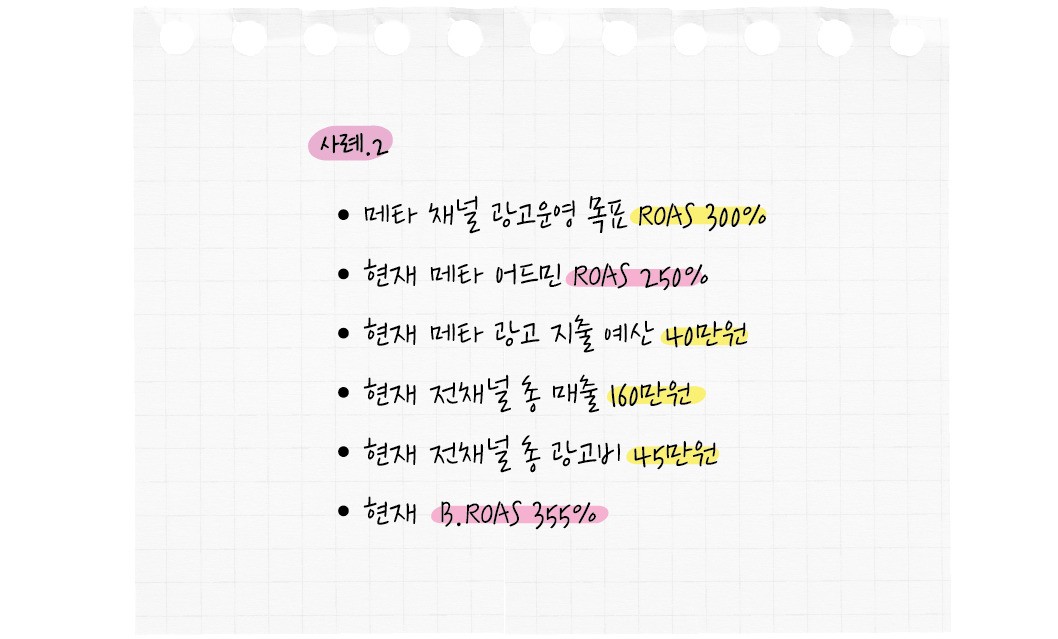 사례.2
• 메타 채널 광고운영 목표 ROAS 300%
• 현재 메타 어드민 ROAS 250%
• 현재 메타 광고 지출 예산 40만원
• 현재 전채널 총 매출 160만원
• 현재 전채널 총 광고비 45만원
• 현재 B.ROAS 355%